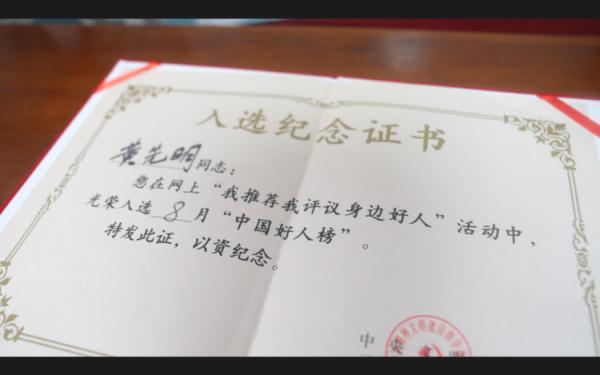 入选纪念证书
黄先明同志：
您在网上“我推荐我评议身边好人”活动中，
光荣入选 8 月“中国好人榜”。
特发此证，以资纪念。
中